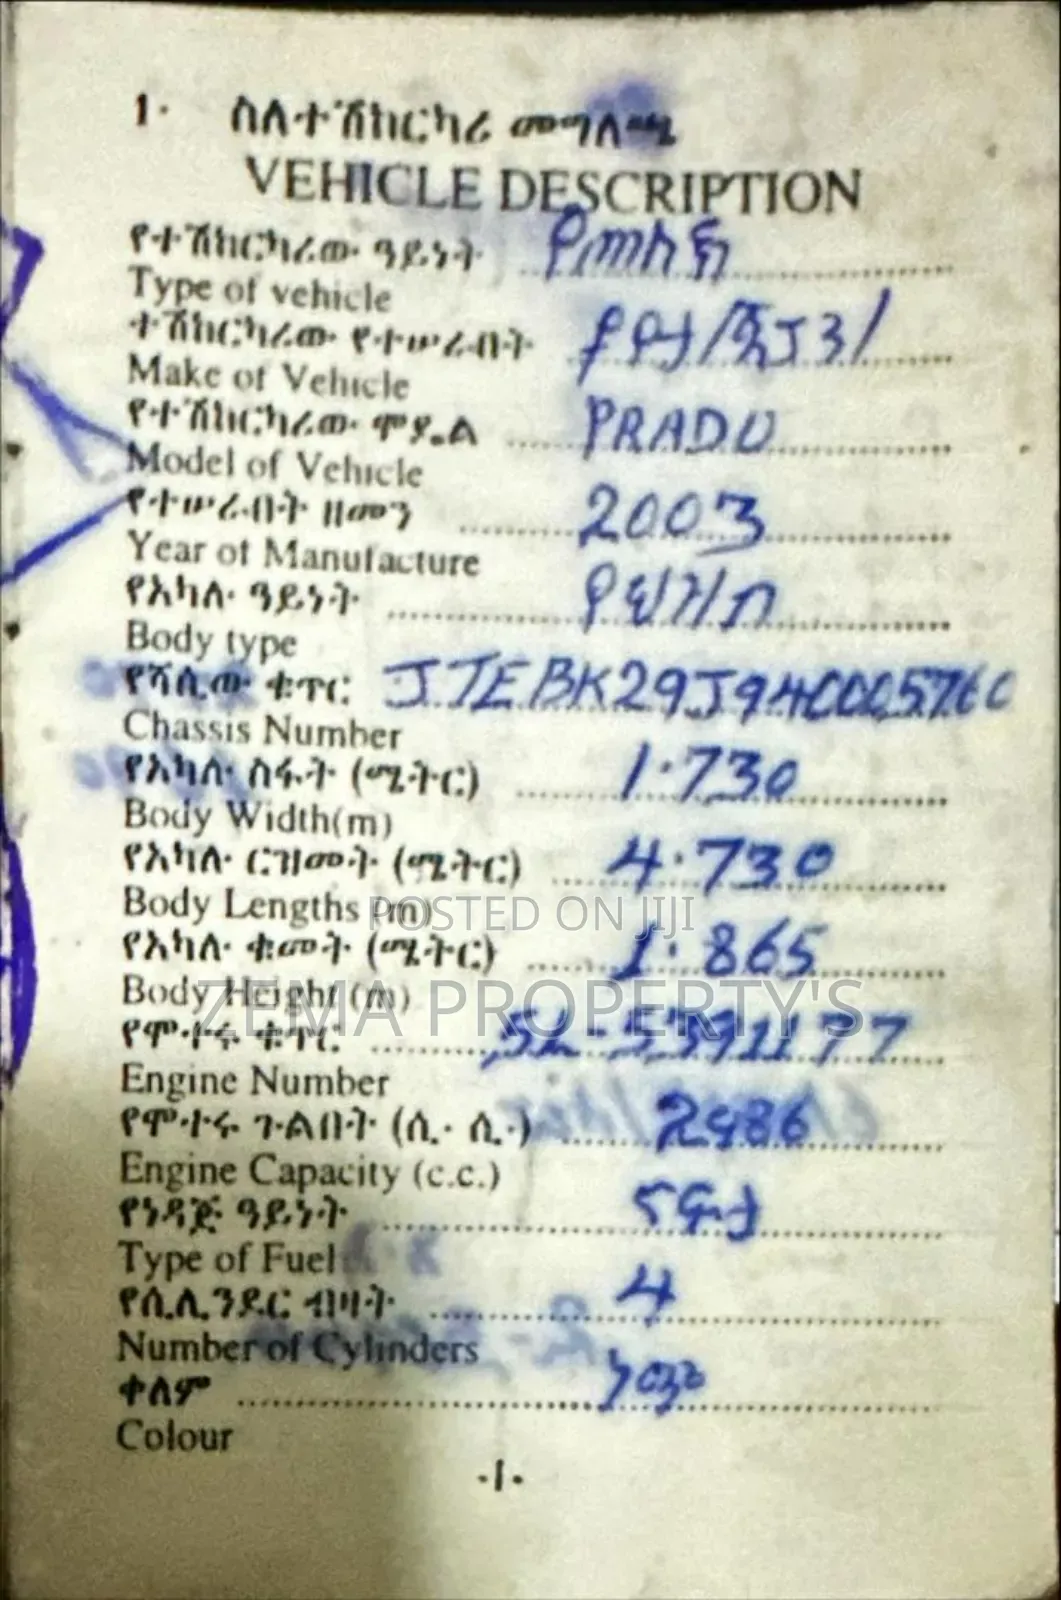 1. ስለተሽከርካሪ መግለጫ
VEHICLE DESCRIPTION
የተሽከርካሪው ዓይነት
Type of vehicle
ተሽከርካሪው የተሠራበት
Make of Vehicle
የተሽከርካሪው ሞዴል PRADO
Model of Vehicle
የተሠራበት ዘመን 2003
Year of Manufacture
የአካሉ ዓይነት
Body type
የሻሲው ቁጥር JTEBK29J940005760
Chassis Number
የአካሉ ስፋት (ሜትር) 1.730
Body Width(m)
የአካሉ ርዝመት (ሜትር) 4.730
Body Lengths (m)
POSTED ON JIJI
የአካሉ ቁመት (ሜትር) 1.865
Body Height (m)
ZEMA PROPERTY'S
የሞተሩ ቁጥር 5L-5391177
Engine Number
የሞተሩ ጉልበት (ሲ. ሲ.) 2986
Engine Capacity (c.c.)
የነዳጅ ዓይነት ናፍታ
Type of Fuel
የሲሊንደር ብዛት 4
Number of Cylinders
ቀለም ነጭ
Colour
·1·